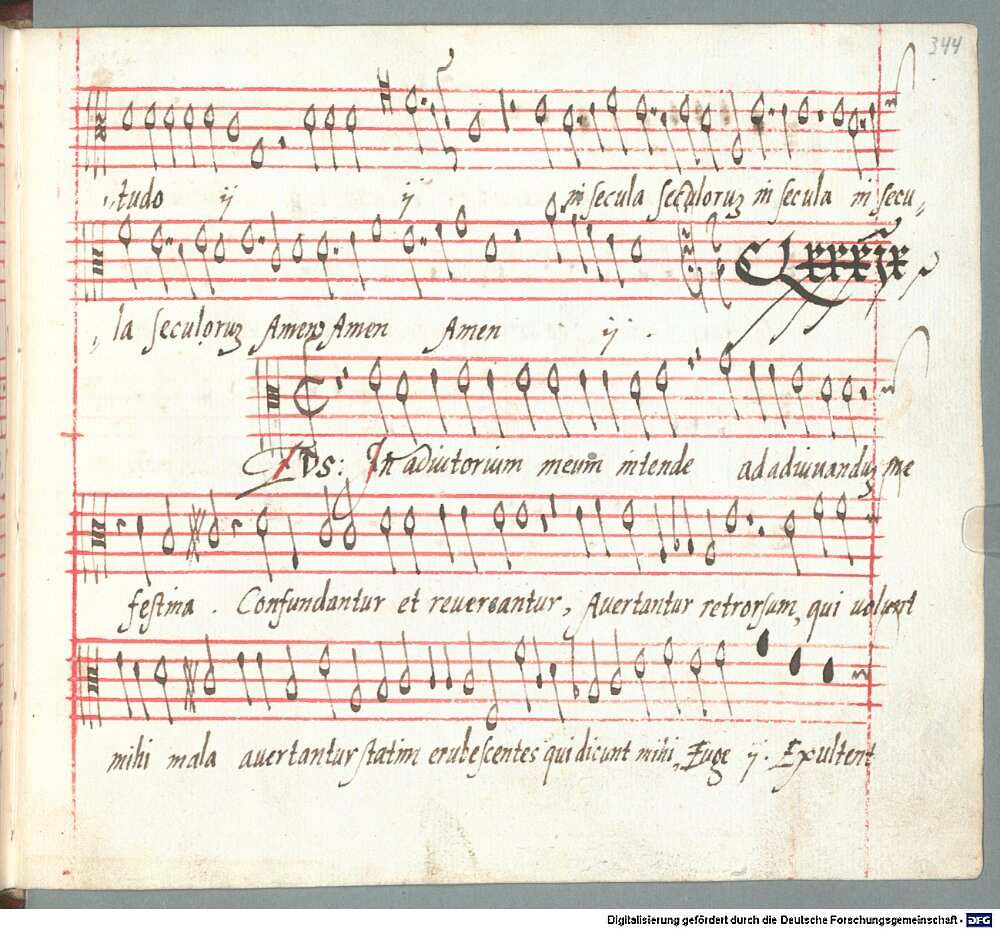 344
„tudo ij ij in secula seculoruʒ in secula in secu„
„la seculoruʒ Amen Amen Amen ij .
CLxxxix
EVS: In adiutorium meum intende ad adiuuanduʒ me
festina . Confundantur et reuereantur, Auertantur retrorsum, qui volunt
mihi mala auertantur statim erubescentes qui dicunt mihi, Euge ij . Exultent
Digitalisierung gefördert durch die Deutsche Forschungsgemeinschaft - DFG